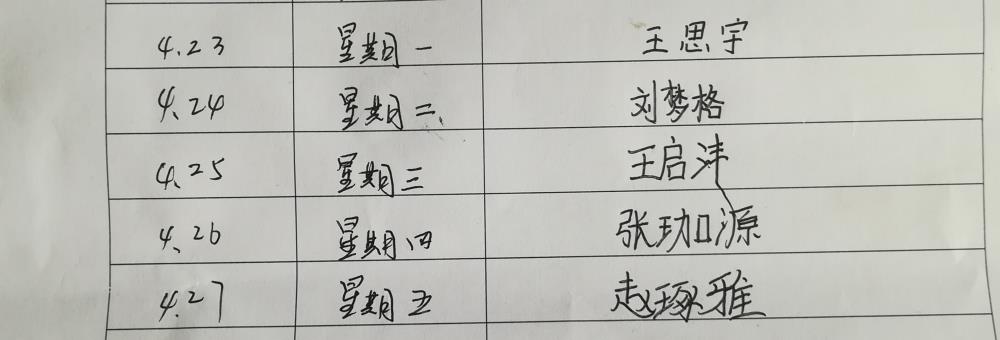 4.23 星期一 王思宇
4.24 星期二 刘梦格
4.25 星期三 王启沣
4.26 星期四 张珈源
4.27 星期五 赵琢雅